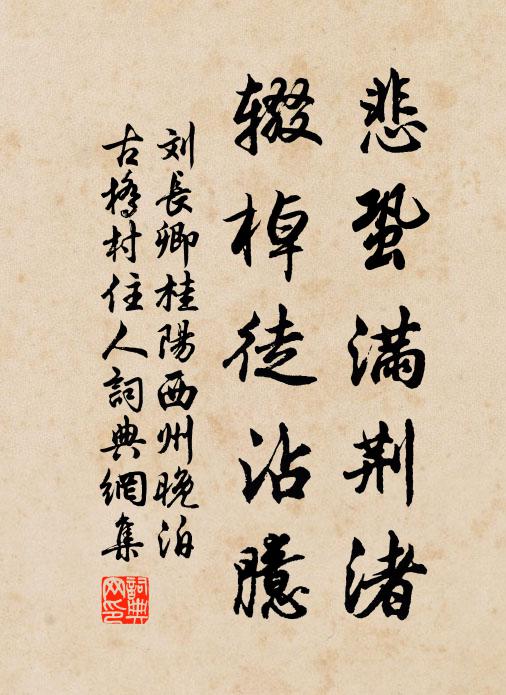 悲蛩满荆渚
辍棹徒沾臆
刘長卿桂陽西州晚泊
古橋村住人詞典網集
詞典網印